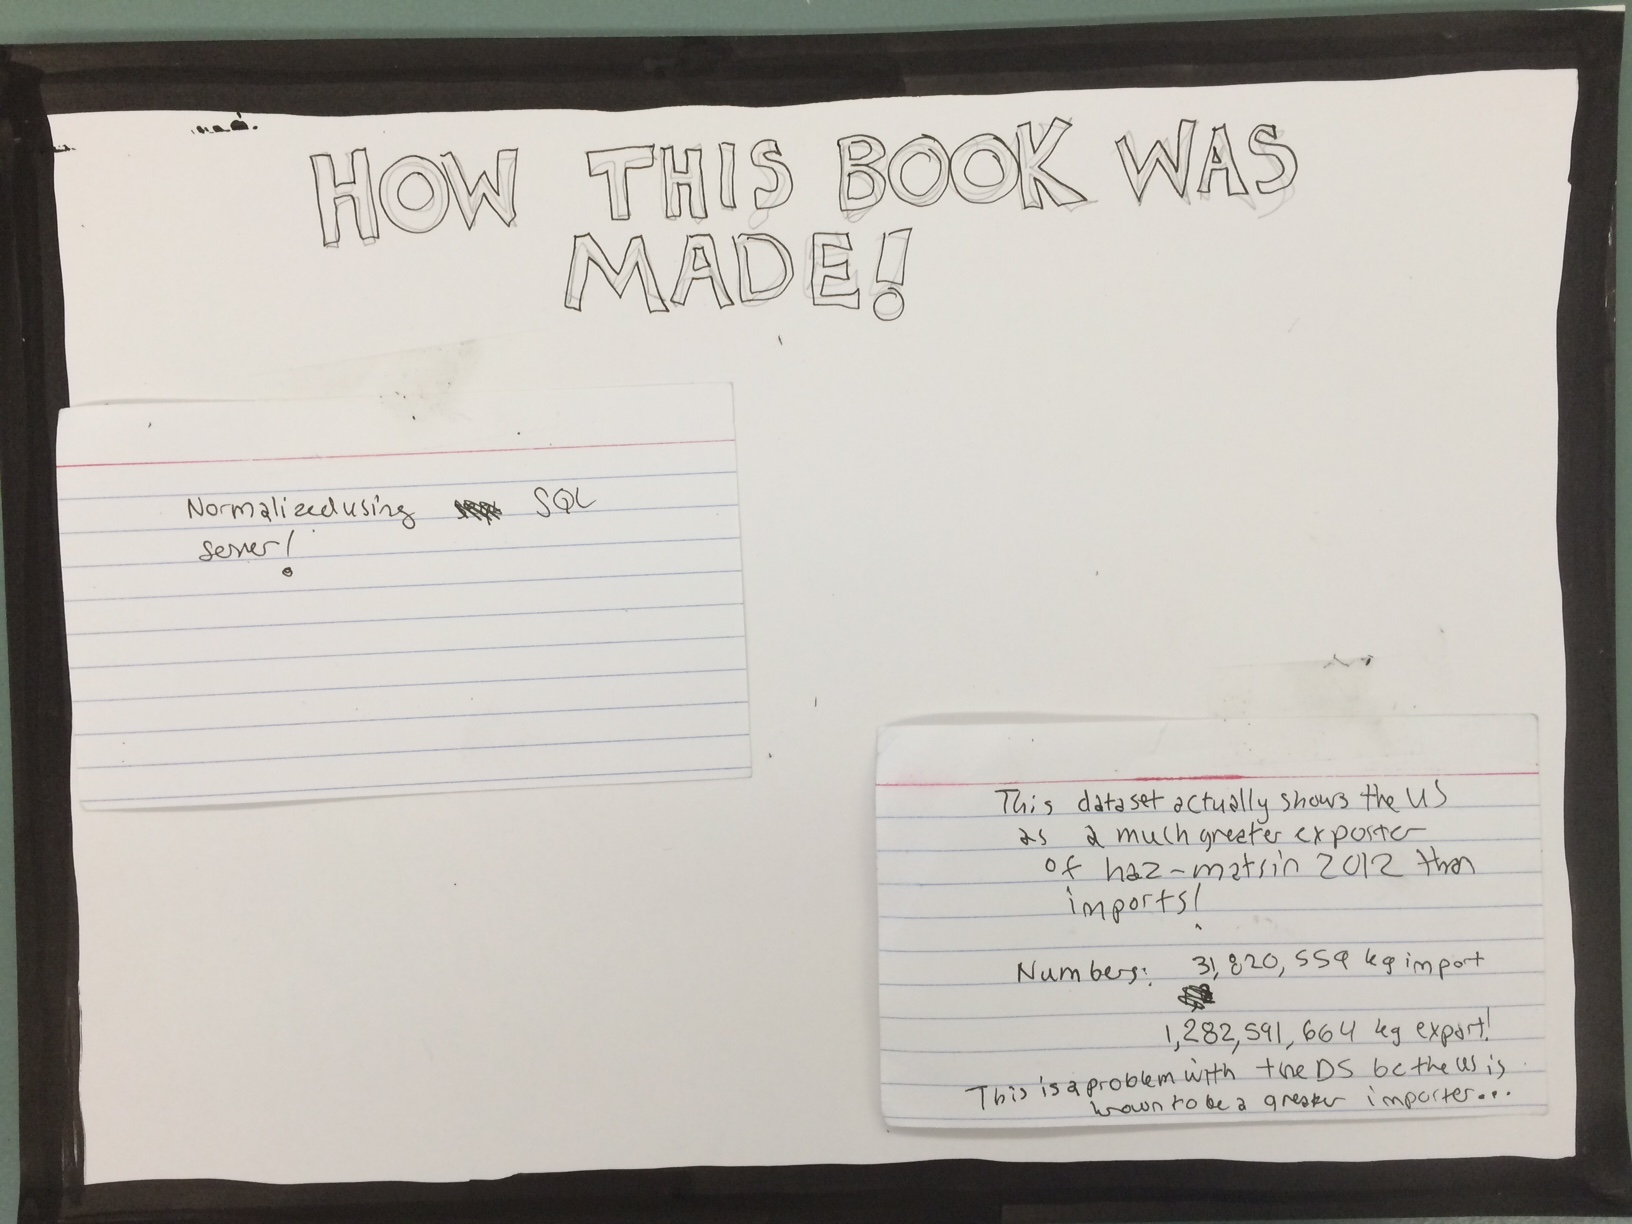 HOW THIS BOOK WAS
MADE!
Normalized using SQL
server!
This dataset actually shows the US
as a much greater exporter
of haz-mats in 2012 than
imports!
Numbers: 31,820,559 kg import
1,282,591,664 kg export!
This is a problem with the DS bc the US is
known to be a greater importer...